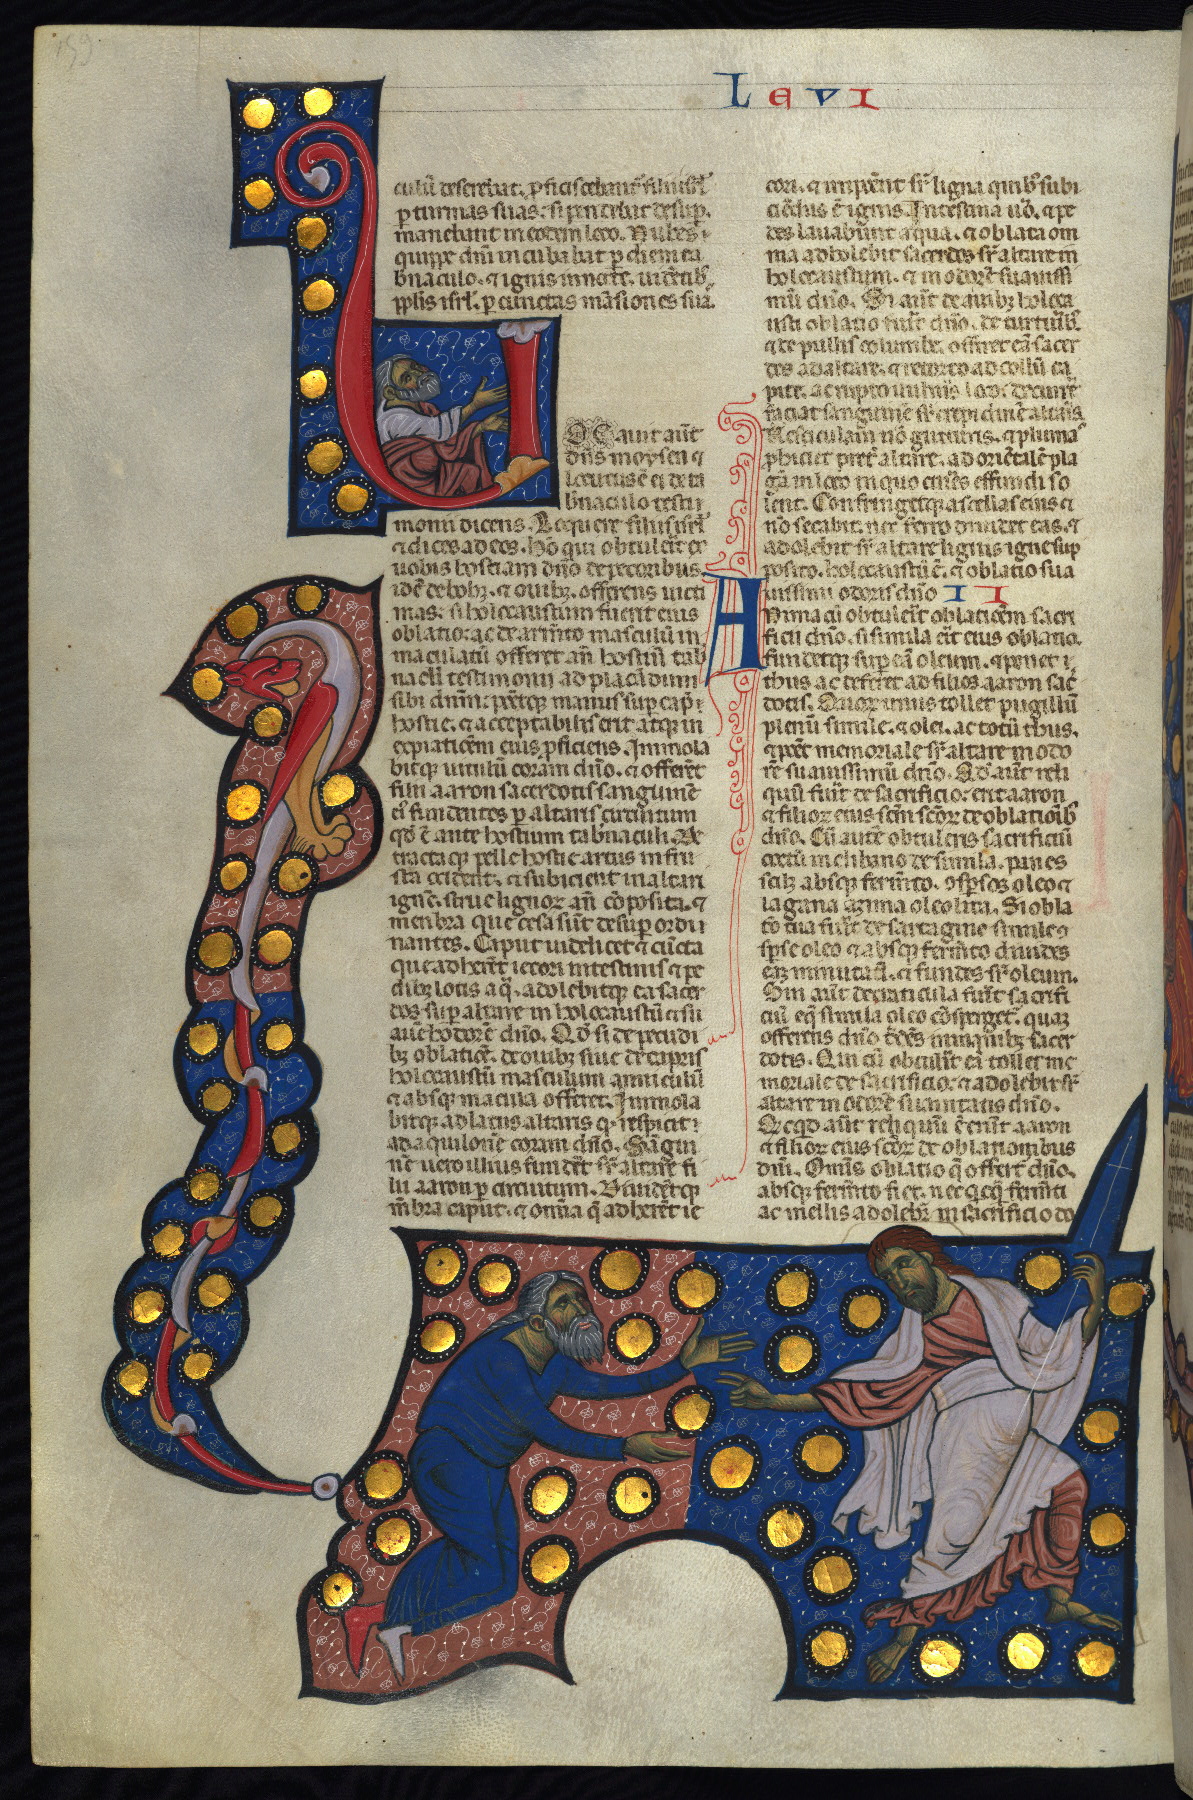 159
LEVI
culū deserebat. ꝓficiscebant filii isrł
p turmas suas: si pendebat desup.
manebant in eodem loco. Nubes
quippe dn̄i incubabat p diem ta
bnaculo. ⁊ ignis in nocte. uidētibꝰ
pplis isrł. p cunctas māsiones suas.
VOCauit aūt
dn̄s moysen ⁊
locutus ē ei de ta
bnaculo testi
monii dicens. Loquere filiis isrł
⁊ dices ad eos. Hō qui obtulerit ex
uobis hostiam dn̄o de pecoribus.
idē de bobꝫ. ⁊ ouibꝫ. offerens uicti
mas: si holocaustum fuerit eius
oblatio: ac de armēto masculū in
maculatū offeret an̄ hostiū tab
naculi testimonii ad placādum
sibi dnm̄: ponetqꝫ manus sup caput
hostie. ⁊ acceptabilis erit atqꝫ in
expiatiōem eius pficiens. Immola
bitqꝫ uitulū coram dn̄o. ⁊ offerēt
filii aaron sacerdotis sanguinē
eiꝰ fundentes p altaris circuitum
qd̄ ē ante hostium tabnaculi. De
tractaqꝫ pelle hostie artus in fru
sta concident. ⁊ subicient in altari
ignē. strue lignoꝝ an̄ cōposita. ⁊
menbra que cesa sūt desup ordi
nantes. Caput uidelicet ⁊ cūcta
que adherēt iecori intestinis ⁊ pe
dibꝫ lotis aq̄. adolebitqꝫ ea sacer
dos sup altare in holocaustū ⁊ su
auē hodorē dn̄o. Qd̄ si de pecudi
bꝫ oblatio ē. de ouibꝫ siue de capris
holocaustū masculum anniculū
⁊ absqꝫ macula offeret. Immola
bitqꝫ ad latus altaris qd̄ respicit
ad aquilonē coram dn̄o. Sāgui
nē uero illius fundēt sr̄ altare fi
lii aaron p circuitum. Diuidētqꝫ
mēbra caput. ⁊ om̄ia q̄ adherēt ie
cori. ⁊ inponēt sr̄ ligna quibꝫ subi
ciēdus ē ignis. Intestina uō. ⁊ pe
des lauabūnt aqua. ⁊ oblata om
nia adolebit sacerdos sr̄ altare in
holocaustum. ⁊ in odorē suauissi
mū dn̄o. Si aūt de auibꝫ holoca
usti oblatio fuīt dn̄o. de turturibꝫ.
⁊ de pullis columbe. offeret eā sacer
dos ad altare. ⁊ retorto ad collū ca
pite. ac rupto uulnīs loco: decurrē
faciat sanguinē sr̄ crepidinē altaris.
Uesiculam uō gutturis. ⁊ plumas
phiciet ppe altare. ad oriētalē pla
gā in loco in quo cineres effundi so
lent. Confringetqꝫ ascellas eius ⁊
nō secabit. nec ferro diuidet eas. ⁊
adolebit sr̄ altare lignis igne sup
posito. holocaustū ē. ⁊ oblatio sua
uissimi odoris dn̄o II
Anima cū obtulerit oblatiōem sacri
ficii dn̄o. si simila erit eius oblatio.
fundetqꝫ sup eā oleum. ⁊ ponet
thus ac deferet ad filios aaron sac̄
dotis. Quoꝝ unus tollet pugillū
plenū simile. ⁊ olei. ac totū thus.
⁊ ponet memoriale sr̄ altare in odo
rē suauissimū dn̄o. Qd̄ aūt reli
quū fuīt de sacrificio: erit aaron
⁊ filioꝝ eius scm̄ scoꝝ de oblatioībꝫ
dn̄o. Cū autē obtuleris sacrificiū
coctū in clibano de simila. panes
scilꝫ absqꝫ ferm̄to. cōspsos oleo ⁊
lagana azima oleo lita. Si obla
tō tua fuīt de sartagine simile
spse oleo ⁊ absqꝫ ferm̄to diuides
eā minutatī. ⁊ fundes sr̄ oleum.
Sin aūt de craticula fuīt sacrifi
ciū eq̄ simila oleo cōsperget. quam
offerens dn̄o trades manuibꝫ sacer
dotis. Qui cū obtulīt eā tollet me
moriale de sacrificio. ⁊ adolebit sr̄
altare in odorē suauitatis dn̄o.
Qcqd̄ aūt reliquū ē erīt aaron
⁊ filioꝝ eius scōꝝ de oblationibus
dn̄i. Omīs oblatio q̄ offert dn̄o.
absqꝫ ferm̄to fiet. nec qcq̄ fermēti
ac mellis adolebit in sacrificio do